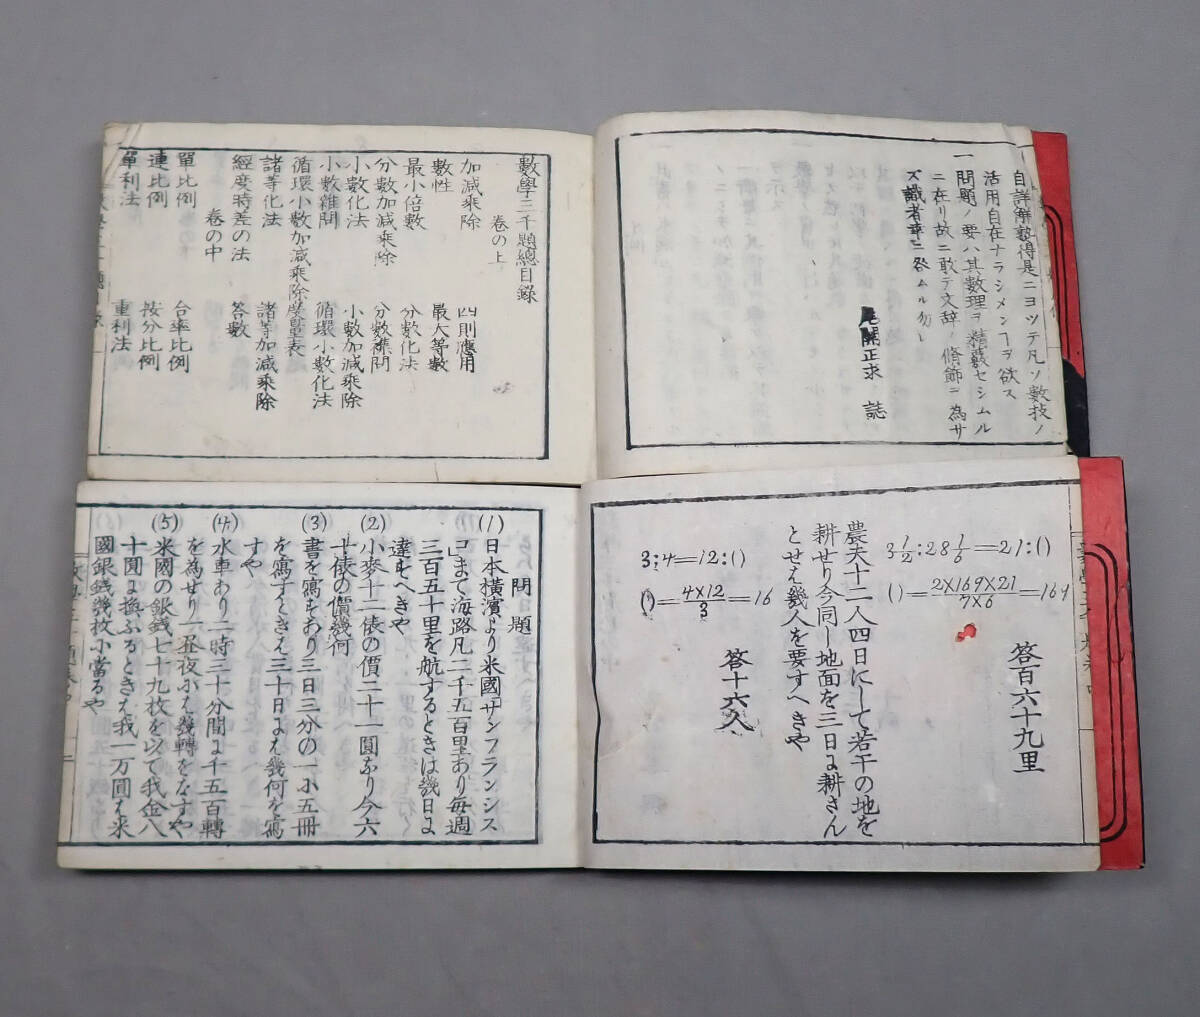 自詳解熟得是ニヨツテ凡ソ數技ノ
活用自在ナラシメンヿヲ欲ス
一問題ノ要ハ其數理ヲ精覈セシムル
ニ在リ故ニ敢テ文辞ノ修飾ニ為サ
ズ識者幸ニ咎ムル勿レ
尾關正求 誌
數學三千題總目錄
卷の上
加減乘除 四則應用
數性 最大等數
最小倍數 分數化法
分數加減乘除 分數雜問
小數化法 小數加減乘除
小數雜問 循環小數化法
循環小數加減乘除 度量表
諸等化法 諸等加減乘除
經度時差の法 答數
卷の中
單比例 合率比例
連比例 按分比例
單利法 重利法
3 1/2:28 1/6=21:()
()=2×169×21/7×6=169
答百六十九里
農夫十二人四日にして若干の地を
耕せり今同し地面を三日に耕さん
とせは幾人を要すへきや
3:4=12:()
()=4×12/3=16
答十六人
問題
(1)日本橫濱より米國サンフランシス
コまて海路凡二千五百里あり每週
三百五十里を航するときは幾日に
達すへきや
(2)小麥十二俵の價二十一圓なり今六
十俵の價幾何
(3)書を寫すあり三日三分の一に五冊
を寫すときは三十日には幾何を寫
すや
(4)水車あり二時三十分間に千五百轉
を為せり一昼夜には幾轉をなすや
(5)米國の銀錢七十九枚を以て我金八
十圓に換ふるときは我一万圓は米
國銀錢幾枚に當るや